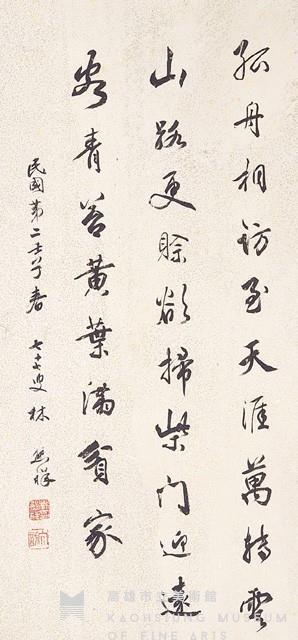 孤舟相訪至天涯萬轉雲
山路更賒欲掃柴門迎遠
客青苔黃葉滿貧家
民國第二壬子春 七十七叟 林熊祥
高雄市立美術館
KAOHSIUNG MUSEUM
OF FINE ARTS